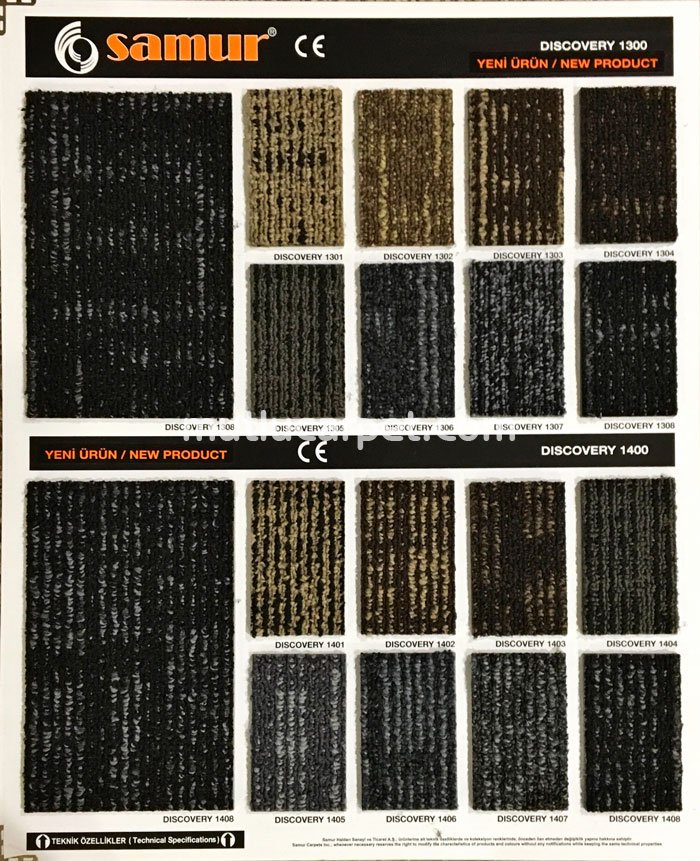 samur® CE DISCOVERY 1300
YENİ ÜRÜN / NEW PRODUCT
DISCOVERY 1301 DISCOVERY 1302 DISCOVERY 1303 DISCOVERY 1304
DISCOVERY 1308 DISCOVERY 1305 DISCOVERY 1306 DISCOVERY 1307 DISCOVERY 1308
mutlucarpet.com
YENİ ÜRÜN / NEW PRODUCT CE DISCOVERY 1400
DISCOVERY 1401 DISCOVERY 1402 DISCOVERY 1403 DISCOVERY 1404
DISCOVERY 1408 DISCOVERY 1405 DISCOVERY 1406 DISCOVERY 1407 DISCOVERY 1408
TEKNİK ÖZELLİKLER ( Technical Specifications )
Samur Halıları Sanayi ve Ticaret A.Ş., ürünlerine ait teknik özelliklerde ve koleksiyon renklerinde, önceden ilan etmeden değişiklik yapma hakkına sahiptir.
Samur Carpets Inc., whenever necessary reserves the right to modify the characteristics of products and colours without any notifications while keeping the same technical properties.